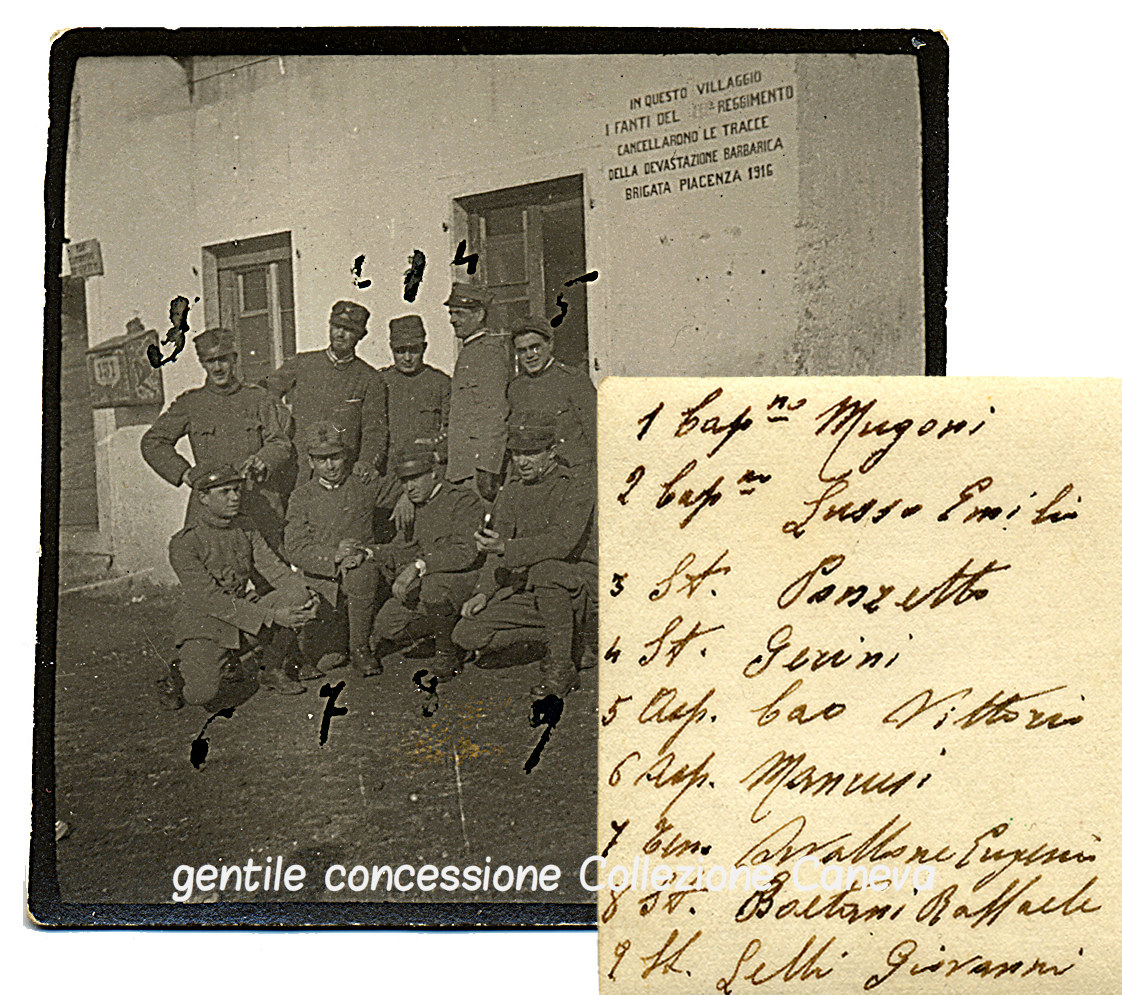 IN QUESTO VILLAGGIO
I FANTI DEL REGGIMENTO
CANCELLARONO LE TRACCE
DELLA DEVASTAZIONE BARBARICA
BRIGATA PIACENZA 1916
151
2 1 4
5
7 8
9
1 Cap.no Mugoni
2 Cap.no Lusso Emilio
3 St. Ponzetto
4 St. Gerini
5 Asp. Cao Vittorio
6 Asp. Mancusi
7 Ten. Avallone Eugenio
8 St. Boetani Raffaele
9 St. Lelli Giovanni
gentile concessione Collezione Caneva